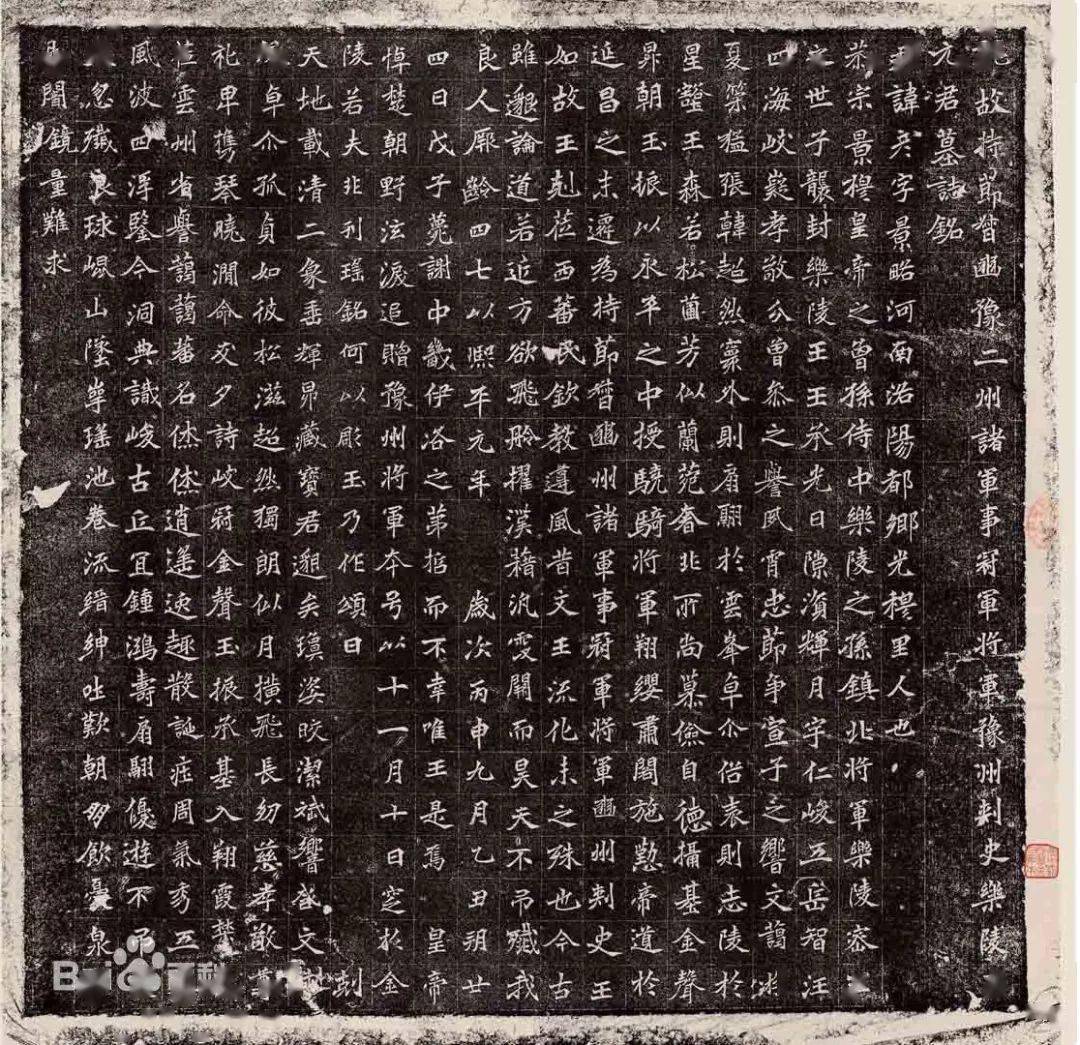 故持節督豳豫二州諸軍事冠軍將軍豫州刺史樂陵
元君墓誌銘
王諱彥字景略河南洛陽都鄉光穆里人也
恭宗景穆皇帝之曾孫侍中樂陵之孫鎮北將軍樂陵密王
之世子襲封樂陵王王承光日隙資輝月宇仁峻五岳智汪
四海岐嶷孝敬分曾參之譽夙宵忠節爭宣子之響文藹遊
夏策猛張韓超然稟外則扇翮於雲峯卓尒俗表則志陵於
星壑王森若松菌芳似蘭菀奢非所尚慕儉自德攝基金聲
昇朝玉振以永平之中授驍騎將軍翔纓肅閣施懃帝道於
延昌之末遷為持節督豳州諸軍事冠軍將軍豳州刺史王
如故王剋莅西蕃民欽教遵風昔文王流化未之殊也今古
雖邈論道若近方欲飛聆擢漢藉汎雯開而昊天不弔殲我
良人厥齡四七以熙平元年歲次丙申九月乙丑朔廿
四日戊子薨謝中畿伊洛之第招而不幸唯王是焉皇帝
悼楚朝野泫淚追贈豫州將軍本号以十一月十日窆於金
陵若夫非刊瑤銘何以彫玉乃作頌曰
天地載清二象垂輝昴藏寶君邈矣瓊姿皎潔斌響盛文
卓尒孤貞如彼松滋超然獨朗似月橫飛長幼慈孝敬
礼卑攜琴曉澗命友夕詩岐冠金聲玉振承基入翔霞
莅雲州省譽藹藹蕃名烋烋逍遙遠趣散誕莊周氣秀五
風波四浮鑒今洞典識峻古丘宜鍾鴻壽扇翮優遊不弔
忽殲良球崐山墜掌瑤池卷流縉紳吐歎朝多飲憂泉
闇鏡量難求
Bai 百科